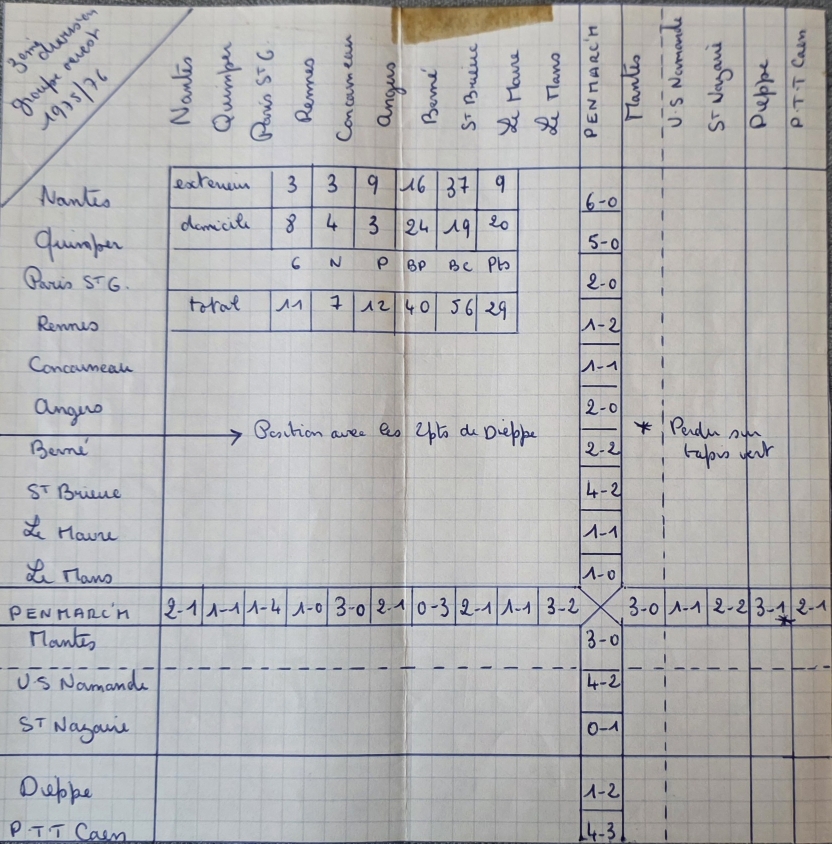 3ème division groupe ouest 1975/76
Nantes Quimper Paris St G. Rennes Concarneau Angers Berné St Brieuc Le Havre Le Mans PENMARC'H Mantes U.S Normande St Nazaire Dieppe P.T.T Caen
Nantes exterieur 3 3 9 16 37 9 6-0
Quimper domicile 8 4 3 24 19 20 5-0
G N P BP BC Pts
Paris St G. 2-0
Rennes total 11 7 12 40 56 29 1-2
Concarneau 1-1
Angers 2-0
→ Position avec les 2pts de Dieppe * Perdu sur
Berné 2-2 tapis vert
St Brieuc 4-2
Le Havre 1-1
Le Mans 1-0
PENMARC'H 2-1 1-1 1-4 1-0 3-0 2-1 0-3 2-1 1-1 3-2 3-0 1-1 2-2 3-1* 2-1
Mantes 3-0
U.S Normande 4-2
St Nazaire 0-1
Dieppe 1-2
P.T.T Caen 4-3